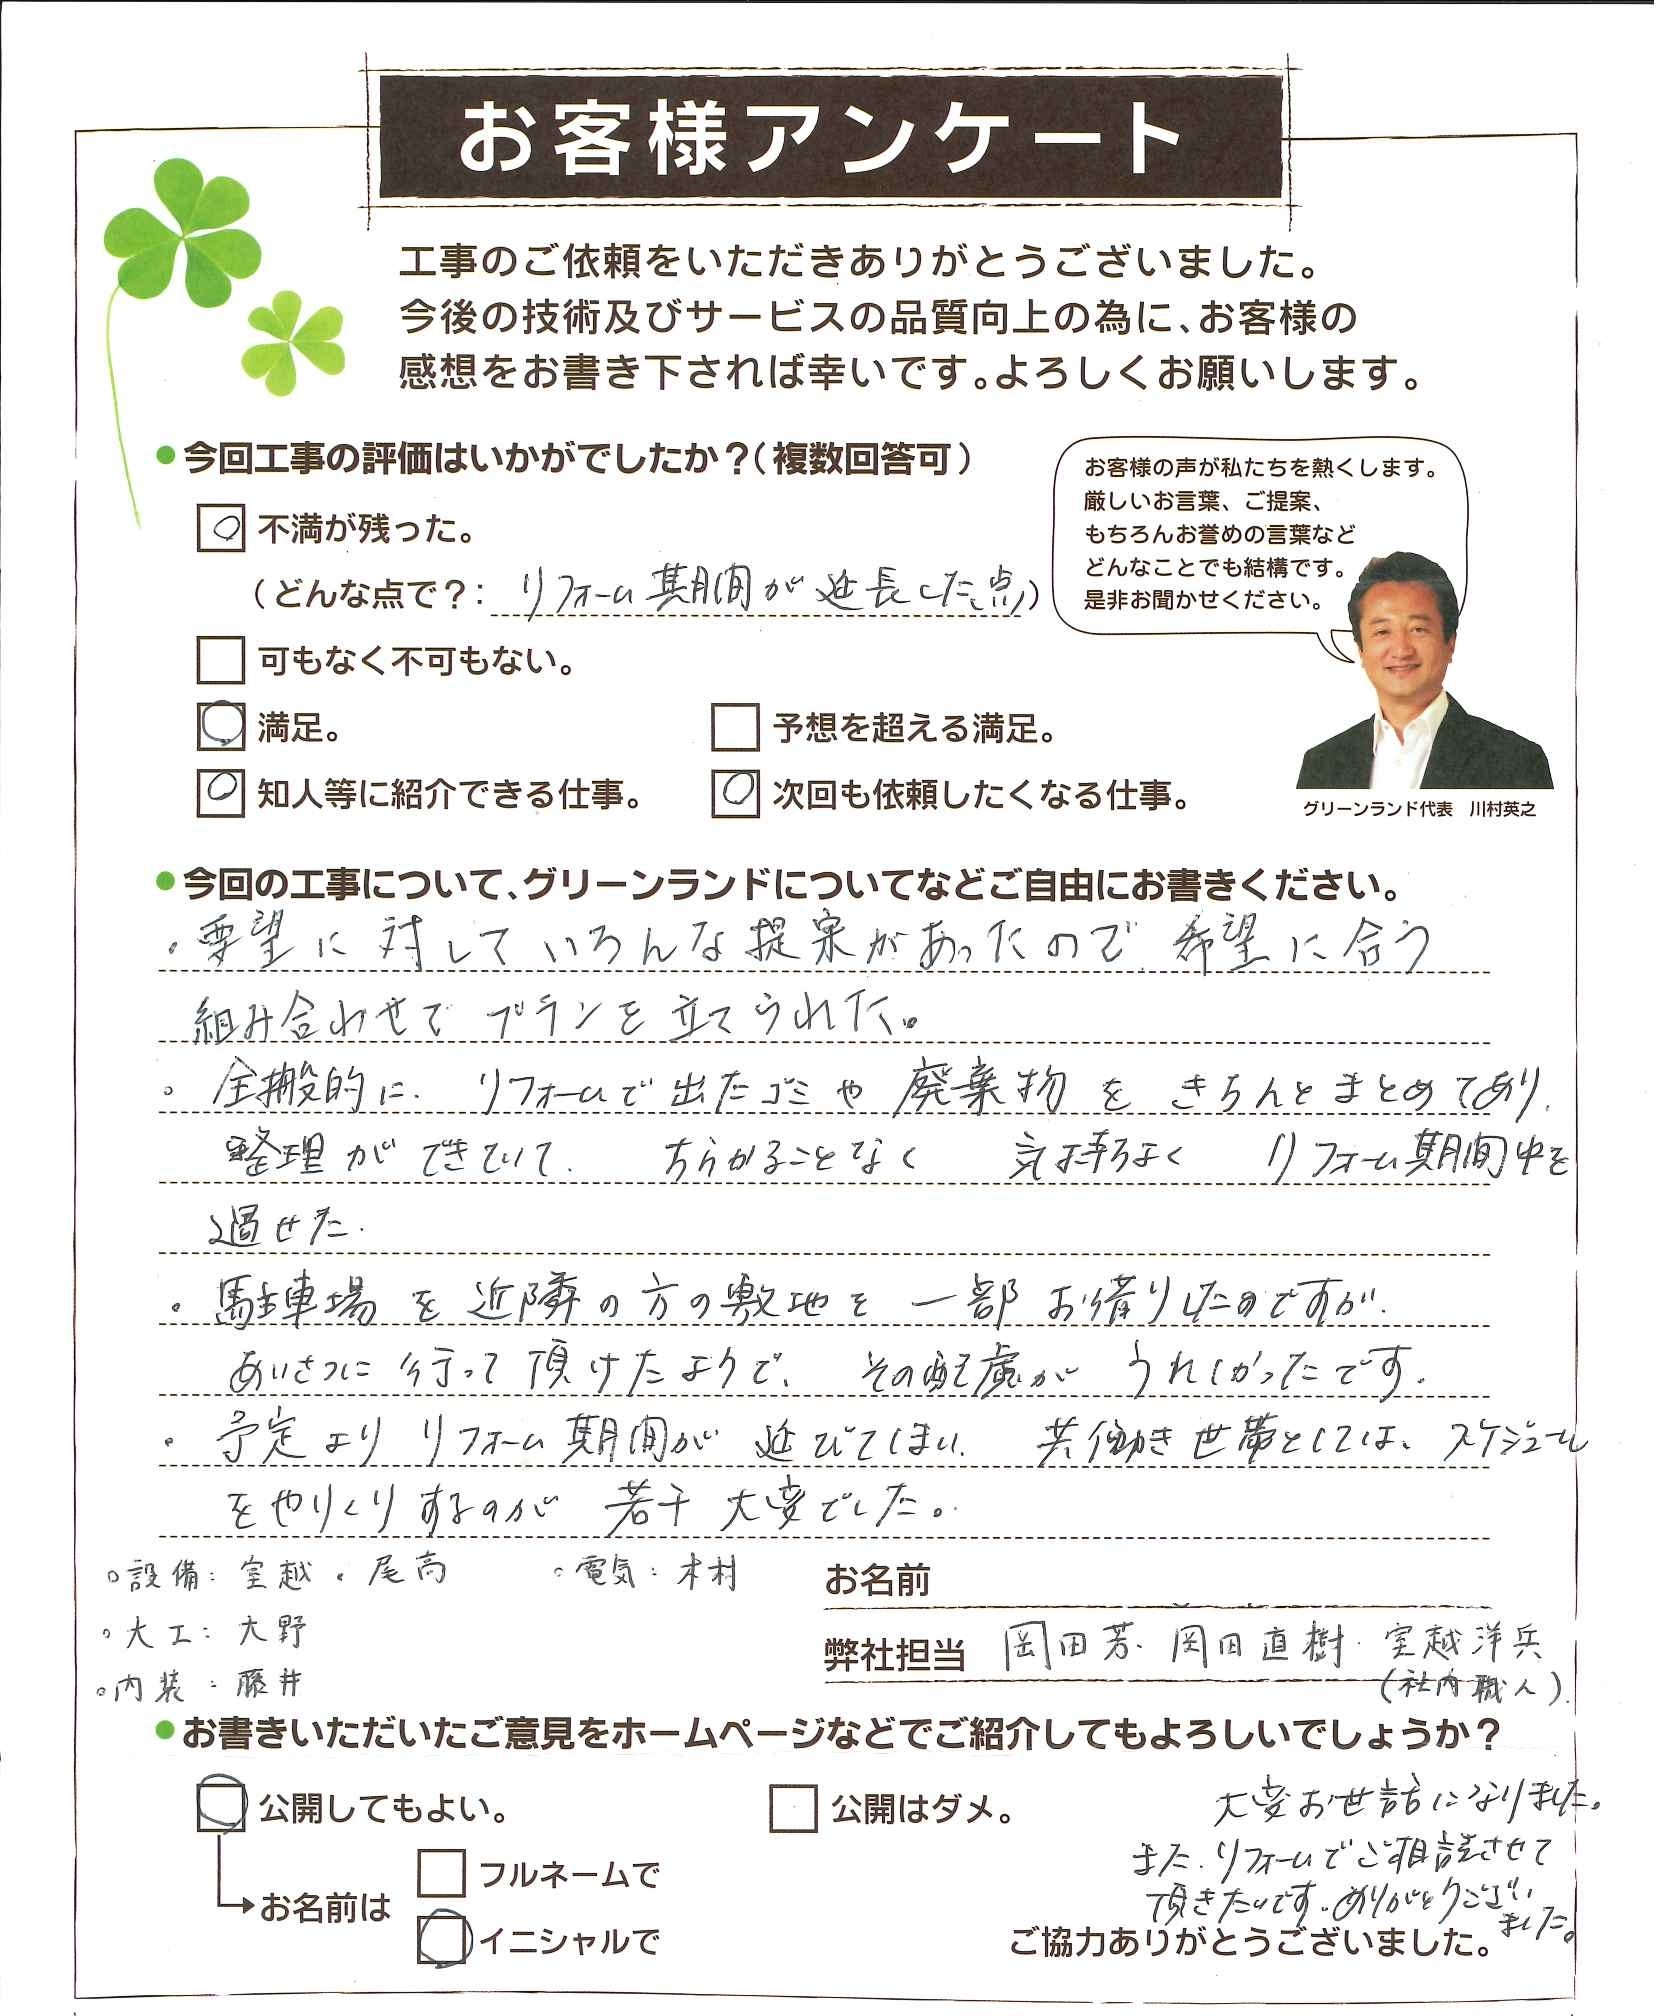 お客様アンケート
工事のご依頼をいただきありがとうございました。
今後の技術及びサービスの品質向上の為に、お客様の
感想をお書き下されば幸いです。よろしくお願いします。
●今回工事の評価はいかがでしたか？（複数回答可）
お客様の声が私たちを熱くします。
厳しいお言葉、ご提案、
もちろんお誉めの言葉など
どんなことでも結構です。
是非お聞かせください。
不満が残った。
（どんな点で？：リフォーム期間が延長した点）
可もなく不可もない。
満足。
予想を超える満足。
知人等に紹介できる仕事。
次回も依頼したくなる仕事。
グリーンランド代表　川村英之
●今回の工事について、グリーンランドについてなどご自由にお書きください。
・要望に対していろんな提案があったので、希望に合う
組み合わせでプランを立てられた。
・全搬的に、リフォームで出たゴミや廃棄物をきちんとまとめてあり、
整理ができていて、ちらかることなく　気持ちよく　リフォーム期間中を
過せた。
・駐車場を近隣の方の敷地を一部お借りしたのですが、
あいさつに行って頂けたようで、その配慮がうれしかったです。
・予定よりリフォーム期間が延びてしまい、共働き世帯としては、スケジュール
をやりくりするのが若干大変でした。
○設備：室越・尾高　○電気：木村
○大工：大野
○内装：藤井
お名前
弊社担当　岡田芳・岡田直樹・室越洋兵
（社内職人）
●お書きいただいたご意見をホームページなどでご紹介してもよろしいでしょうか？
公開してもよい。
公開はダメ。
お名前は
フルネームで
イニシャルで
大変お世話になりました。
また、リフォームでご相談させて
頂きたいです。ありがとうござい
ました。
ご協力ありがとうございました。